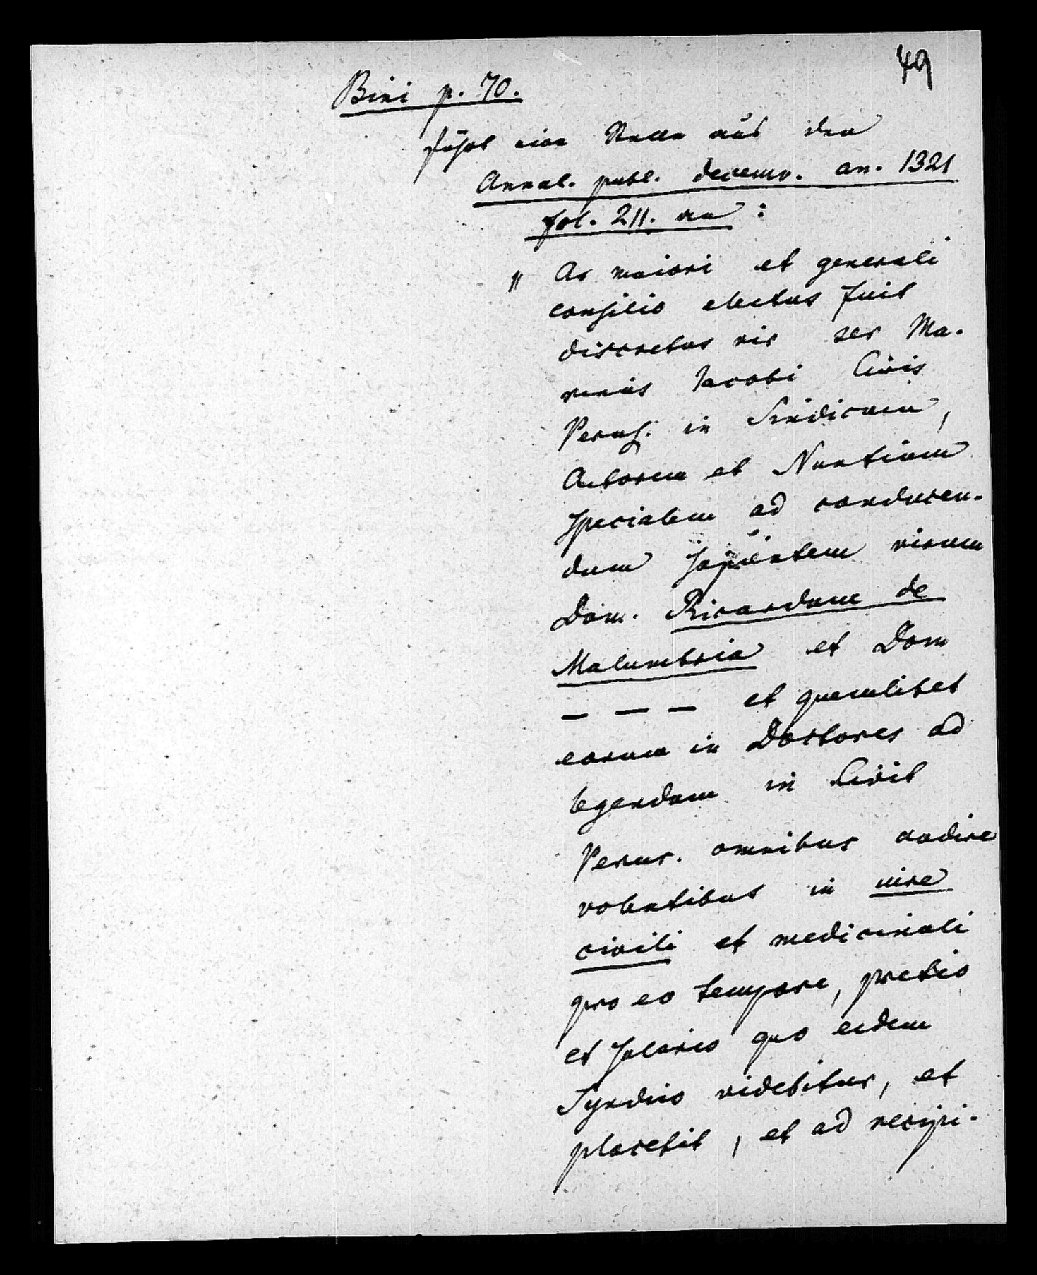 49
Bini p. 70.
führt eine Stelle aus den
Annal. publ. decemv. an. 1321
fol. 211. an :
„ As maiori et generali
consilio electus fuit
discretus vir ser Ma-
Jacobi Civis
Perus. in Sindicum,
Actorem et Nuntium
specialem ad conducen-
dum sapientem virum
Dom. Ricardum de
Malumbria et Dom
— — — et quemlibet
eorum in Doctores ad
legendum in Civit
Perus. omnibus audire
volentibus in iure
civili et medicinali
pro eo tempore, pretio
et salario quo eidem
Syndico videbitur, et
placebit, et ad recipi-